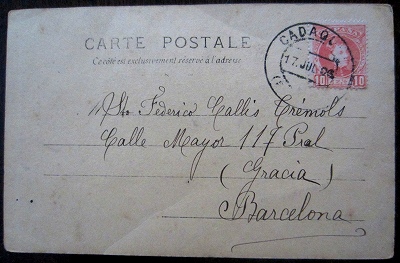 CARTE POSTALE
Ce côté est exclusivement réservé à l'adresse
CADAQ
17 JUL
10 10
Federico Callis Trémols
Calle Mayor 117 Pral
(Gracia)
Barcelona